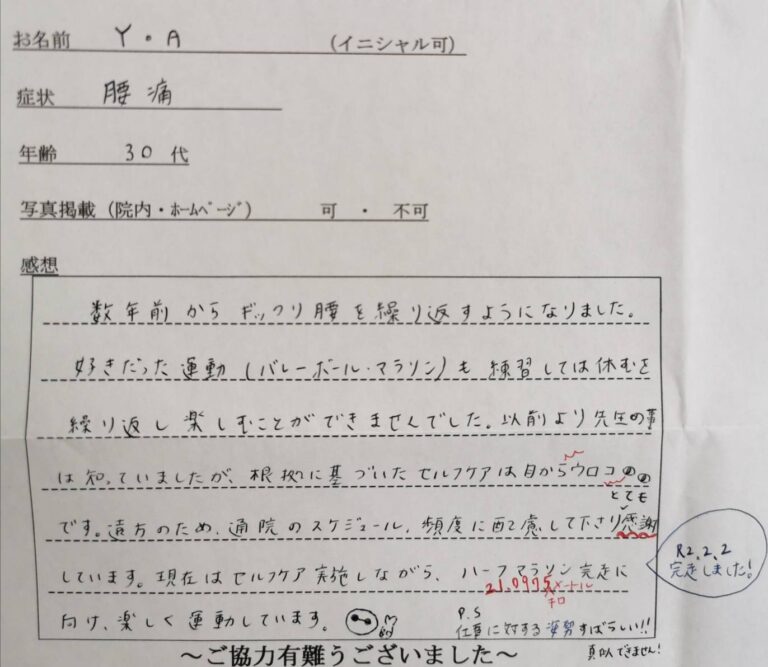 お名前 Y・A (イニシャル可)
症状 腰痛
年齢 30代
写真掲載（院内・ホームページ） 可 ・ 不可
感想
数年前からギックリ腰を繰り返すようになりました。
好きだった運動(バレーボール・マラソン)も練習しては休むを
繰り返し楽しむことができませんでした。以前より先生の事
は知っていましたが、根拠に基づいたセルフケアは目からウロコ
とても
です。遠方のため、通院のスケジュール、頻度に配慮して下さり感謝
しています。現在はセルフケア実施しながら、ハーフマラソン完走に
21.0975
メートル
キロ
向け、楽しく運動しています。
R2.2.2
完走しました!
P.S
仕事に対する姿勢すばらしい!!
真似できません!
〜ご協力有難うございました〜